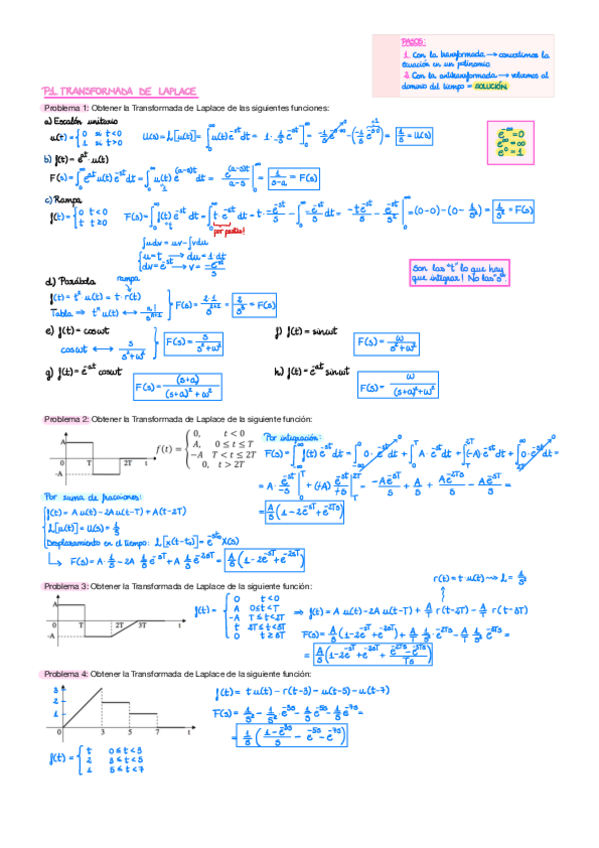 PASOS:
1. Con la transformada → convertimos la
ecuación en un polinomio
2. Con la antitransformada → volvemos al
dominio del tiempo = SOLUCIÓN
P1. TRANSFORMADA DE LAPLACE
Problema 1: Obtener la Transformada de Laplace de las siguientes funciones:
a) Escalón unitario
u(t) = { 0 si t<0
1 si t>0
U(s) = L[u(t)] = ∫₀^∞ u(t) e^-st dt = 1 · e^-st/-s |₀^∞
= 1/s = U(s)
e^-∞ = 0
e^∞ = ∞
e^0 = 1
b) f(t) = e^at · u(t)
F(s) = ∫₀^∞ e^at u(t) e^-st dt = ∫₀^∞ u(t) e^(a-s)t dt = e^(a-s)t/a-s |₀^∞ = 1/s-a = F(s)
c) Rampa
f(t) = { 0 t<0
t t≥0
F(s) = ∫₀^∞ f(t) e^-st dt = ∫₀^∞ t e^-st dt = t · e^-st/-s - ∫₀^∞ e^-st/-s dt = -t e^-st/s - e^-st/s² |₀^∞ = (0-0) - (0 - 1/s²) = 1/s² = F(s)
por partes!
∫udv = uv - ∫vdu
u = t → du = 1 dt
dv = e^-st → v = -e^-st/s
Son las "t" lo que hay
que integrar! No las "s".
d) Parábola
rampa
f(t) = t² u(t) = t · r(t)
Tabla ⇒ t^n u(t) ↔ n!/s^n+1
F(s) = 2·1/s^2+1 = 2/s³ = F(s)
e) f(t) = cos ωt
cos ωt ↔ s/s²+ω²
F(s) = s/s²+ω²
f) f(t) = sin ωt
F(s) = ω/s²+ω²
g) f(t) = e^-at cos ωt
F(s) = (s+a)/(s+a)²+ω²
h) f(t) = e^-at sin ωt
F(s) = ω/(s+a)²+ω²
Problema 2: Obtener la Transformada de Laplace de la siguiente función:
A
0 T 2T t
-A
f(t) = { 0, t < 0
A, 0 ≤ t ≤ T
-A T < t ≤ 2T
0, t > 2T
Por integración:
F(s) = ∫₀^∞ f(t) e^-st dt = ∫ 0 · e^-st dt + ∫₀^T A · e^-st dt + ∫_T^2T (-A) e^-st dt + ∫_2T^∞ 0 · e^-st dt =
= A · e^-st/-s |₀^T + (-A) e^-st/-s |_T^2T = -A e^-sT/s + A/s + A e^-2Ts/s - A e^-sT/s =
= A/s (1 - 2e^-sT + e^-2sT)
Por suma de fracciones:
f(t) = A u(t) - 2A u(t-T) + A(t-2T)
L[u(t)] = U(s) = 1/s
Desplazamiento en el tiempo: L[x(t-t₀)] = e^-st₀ X(s)
↳ F(s) = A · 1/s - 2A 1/s e^-sT + A 1/s e^-2sT = A/s (1 - 2e^-sT + e^-2sT)
Problema 3: Obtener la Transformada de Laplace de la siguiente función:
r(t) = t u(t) → L = 1/s²
A
0 T 2T 3T t
-A
f(t) = { 0 t<0
A 0≤t<T
-A T≤t<2T
t 2T≤t<3T
0 t≥3T
⇒ f(t) = A u(t) - 2A u(t-T) + A/T r(t-2T) - A/T r(t-3T)
F(s) = A/s (1 - 2e^-sT + e^-2sT) + A/T · 1/s² · e^-2sT - A/T 1/s² e^-3Ts =
Problema 4: Obtener la Transformada de Laplace de la siguiente función:
3
2
1
0 3 5 7 t
f(t) = t u(t) - r(t-3) - u(t-5) - u(t-7)
F(s) = 1/s² - 1/s² e^-3s - 1/s e^-5s - 1/s e^-7s =
= 1/s ( 1-e^-3s/s - e^-5s - e^-7s )
f(t) = { t 0≤t<3
2 3≤t<5
1 5≤t<7